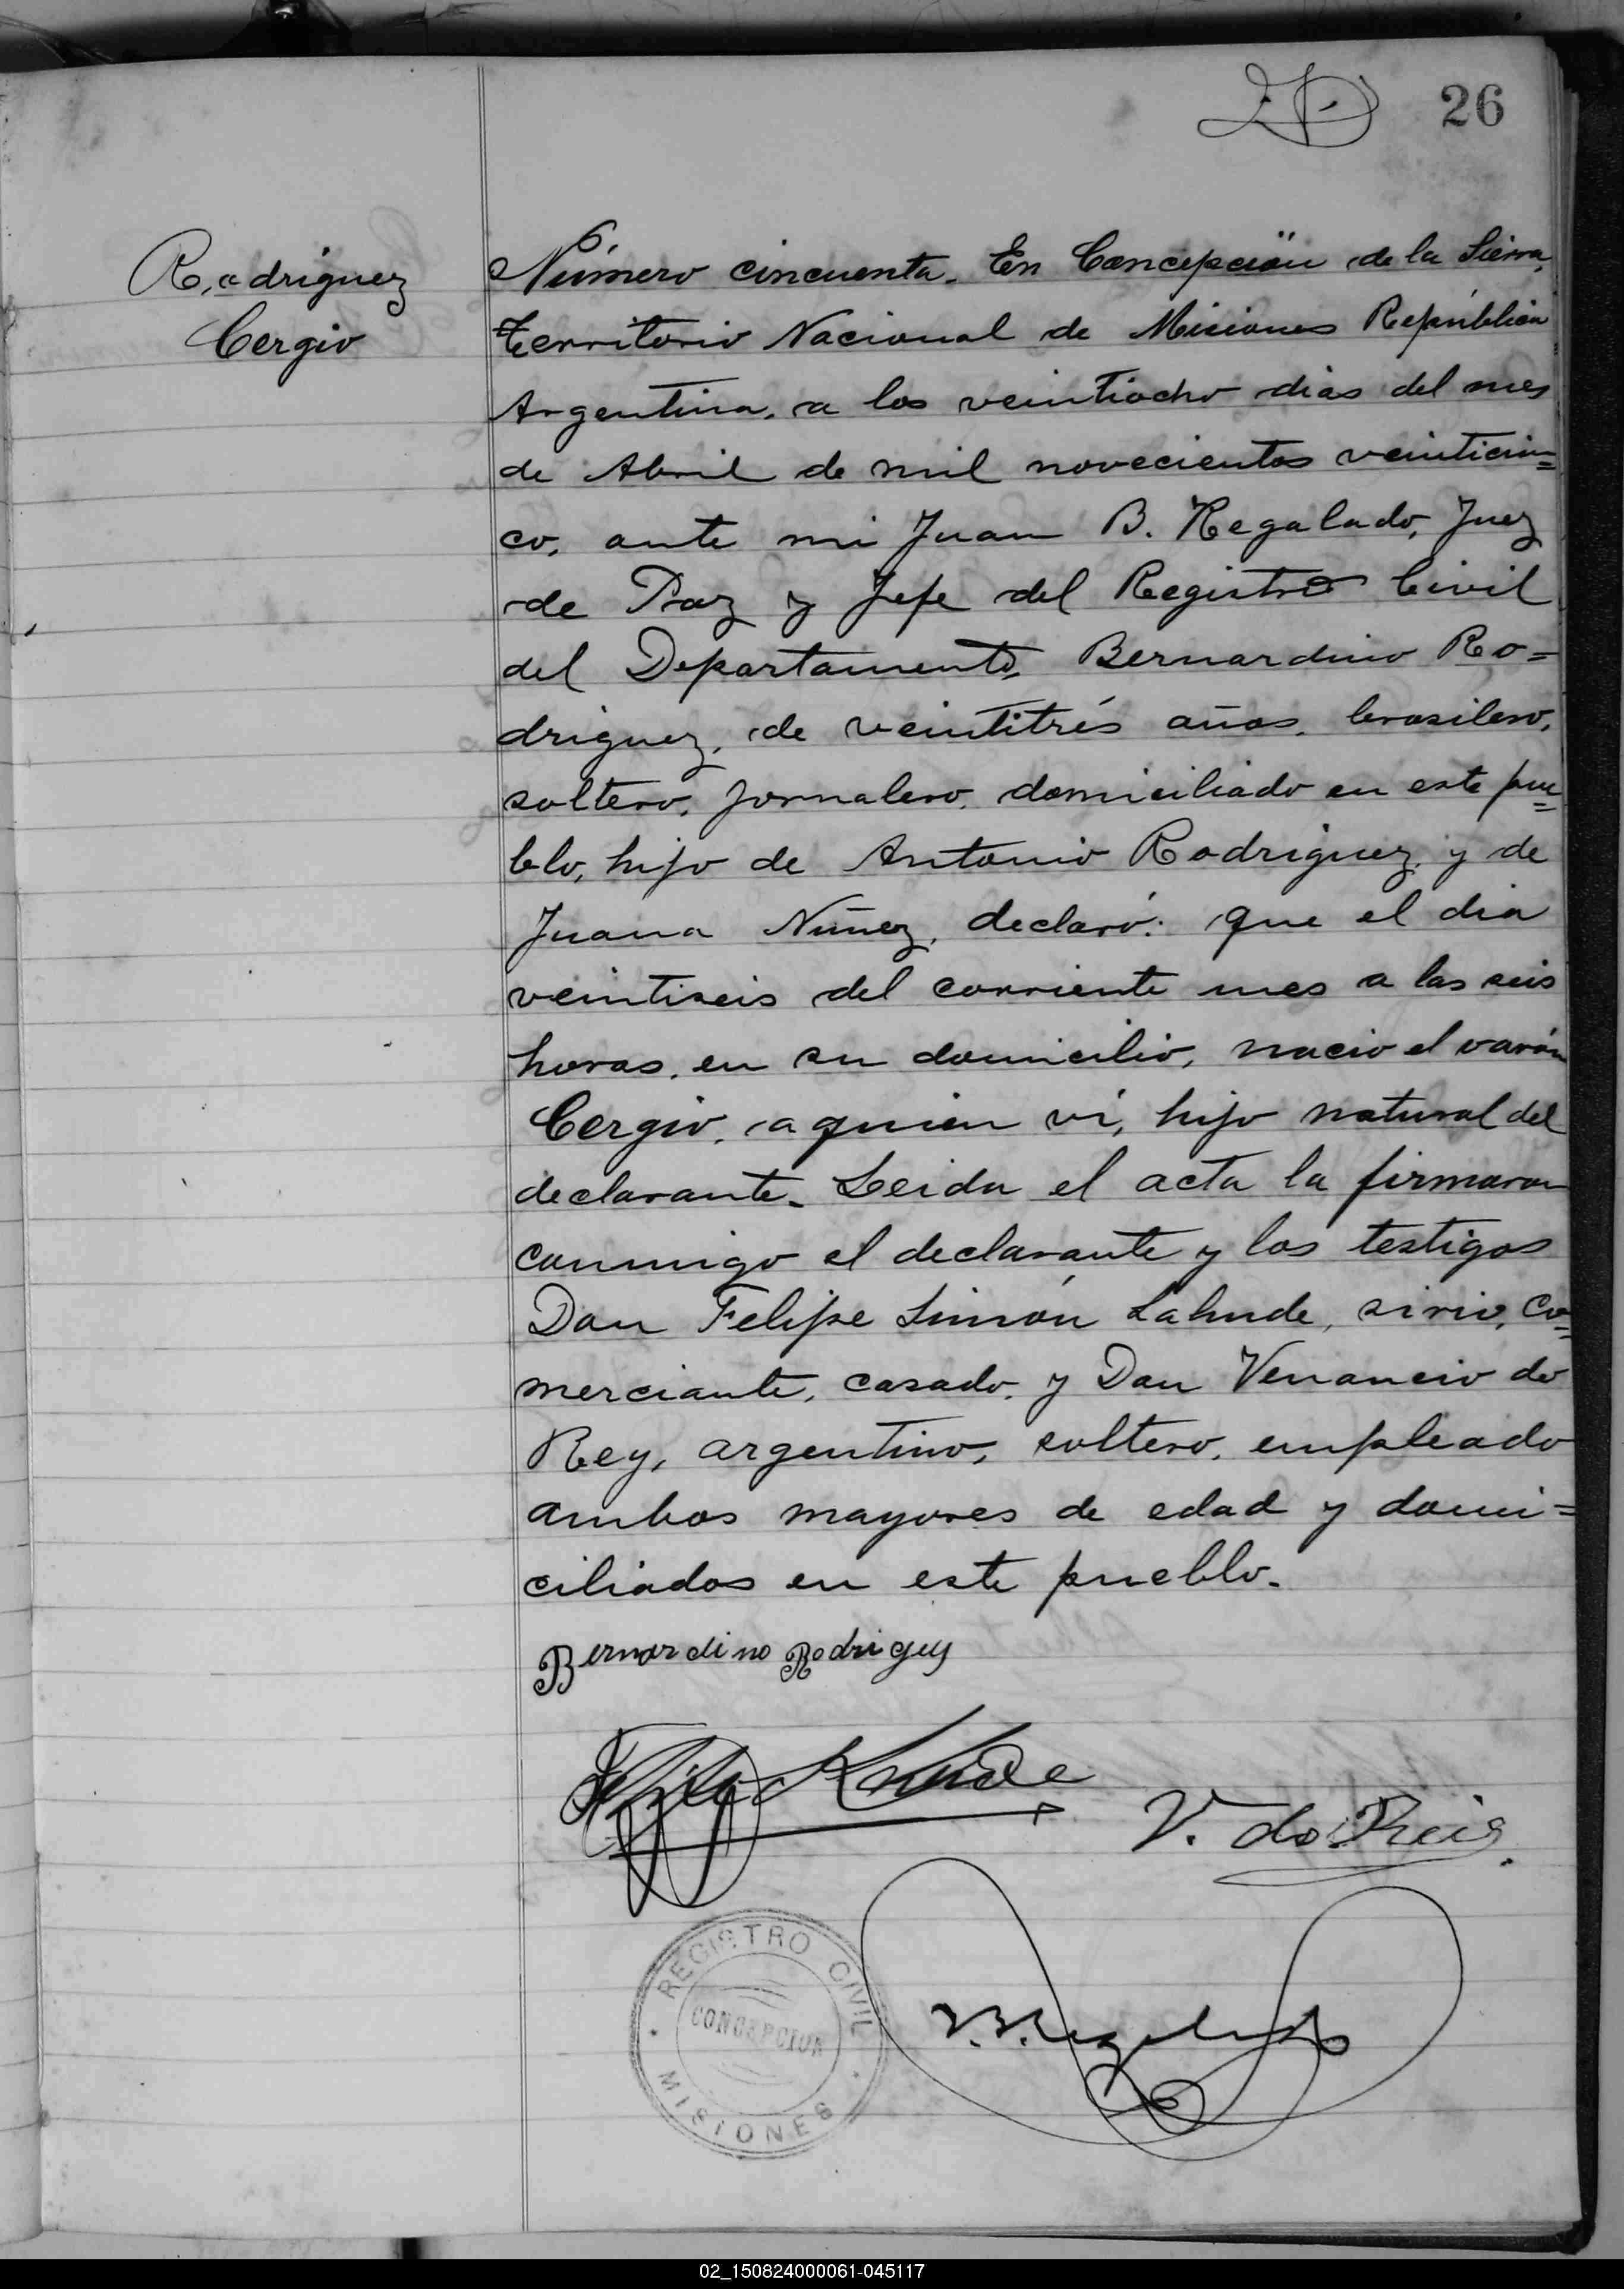 26
Rodriguez
Cergio
Número cincuenta. En Concepción de la Sierra,
Territorio Nacional de Misiones República
Argentina, a los veintiocho dias del mes
de Abril de mil novecientos veinticin=
co, ante mi Juan B. Regalado, Juez
de Paz y Jefe del Registro Civil
del Departamento, Bernardino Ro=
driguez, de veintitrés años, brasilero,
soltero, jornalero, domiciliado en este pue=
blo, hijo de Antonio Rodriguez y de
Juana Núñez, declaró: que el dia
veintiseis del corriente mes a las seis
horas, en su domicilio, nacio el varón
Cergio, a quien vi, hijo natural del
declarante. Leida el acta la firmaron
conmigo el declarante y los testigos
Don Felipe Simón Lahude, sirio, co=
merciante, casado, y Don Venancio do
Rey, argentino, soltero, empleado
ambos mayores de edad y domi=
ciliados en este pueblo.
Bernardino Rodriguez
V. do Reis
REGISTRO CIVIL
CONCEPCION
MISIONES
02_150824000061-045117